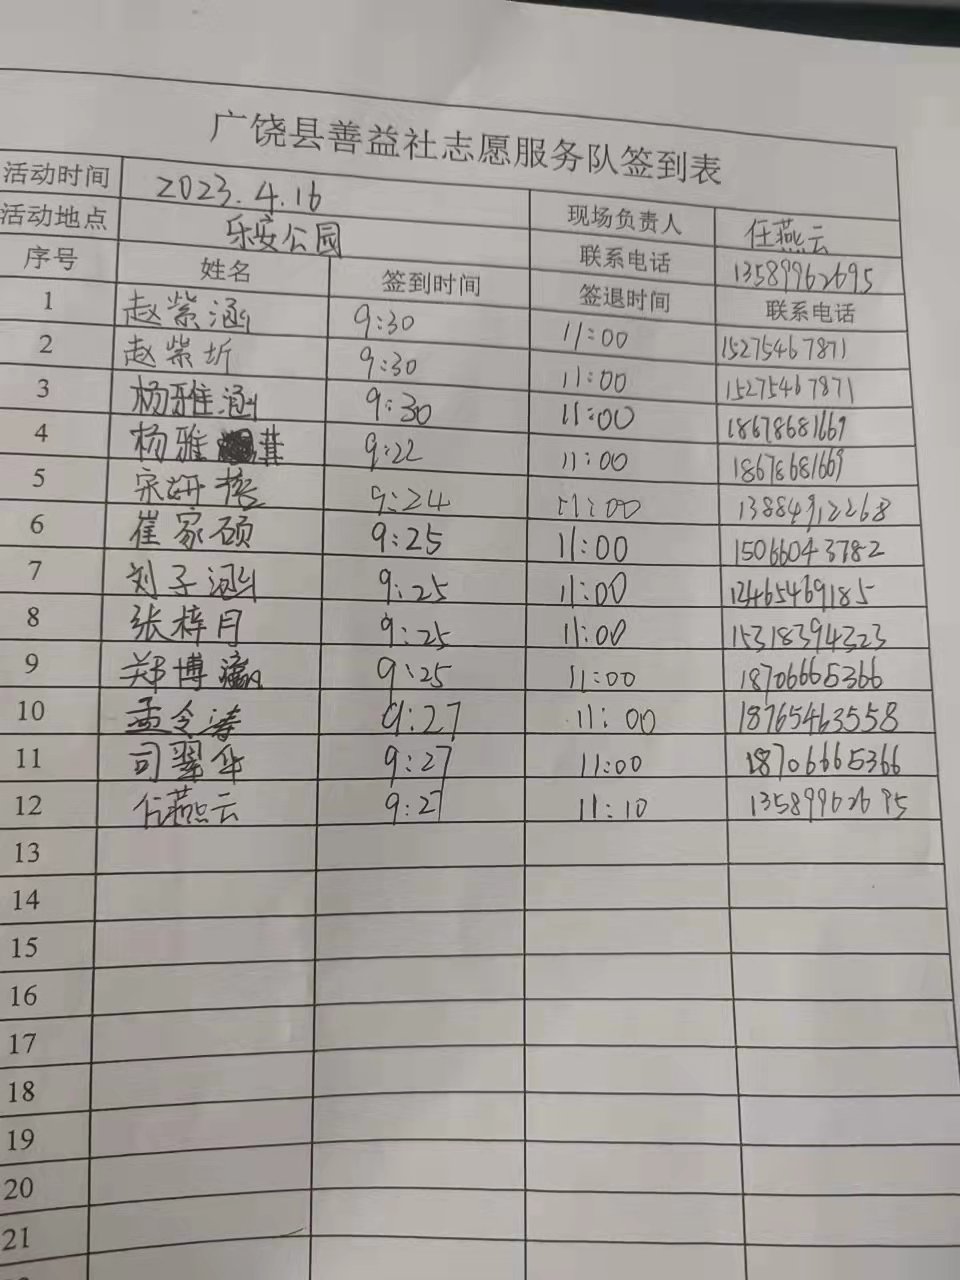 广饶县善益社志愿服务队签到表
活动时间 2023.4.16 现场负责人 任燕云
活动地点 乐安公园 联系电话 13589962695
序号 姓名 签到时间 签退时间 联系电话
1 赵紫涵 9:30 11:00 15275467871
2 赵紫圻 9:30 11:00 15275467871
3 杨雅涵 9:30 11:00 18678681669
4 杨雅 9:22 11:00 18678681669
5 宋妍 9:24 11:00 13884912268
6 崔家硕 9:25 11:00 15066043782
7 刘子涵 9:25 11:00 12465469185
8 张梓月 9:25 11:00 15318394323
9 郑博瀛 9:25 11:00 18706665366
10 孟令涛 9:27 11:00 18765463558
11 司翠华 9:27 11:00 18706665366
12 任燕云 9:27 11:10 13589962695
13
14
15
16
17
18
19
20
21